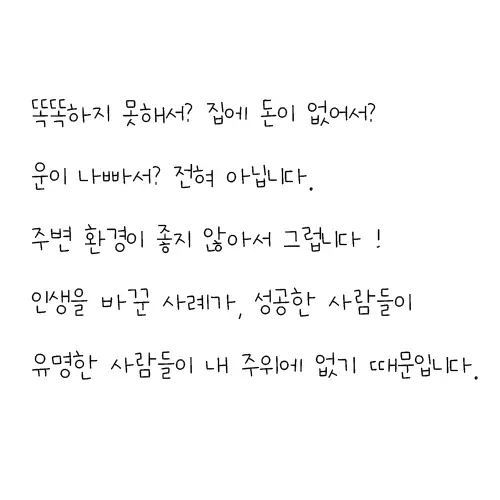 똑똑하지 못해서? 집에 돈이 없어서?
운이 나빠서? 전혀 아닙니다.
주변 환경이 좋지 않아서 그럽니다 !
인생을 바꾼 사례가, 성공한 사람들이
유명한 사람들이 내 주위에 없기 때문입니다.